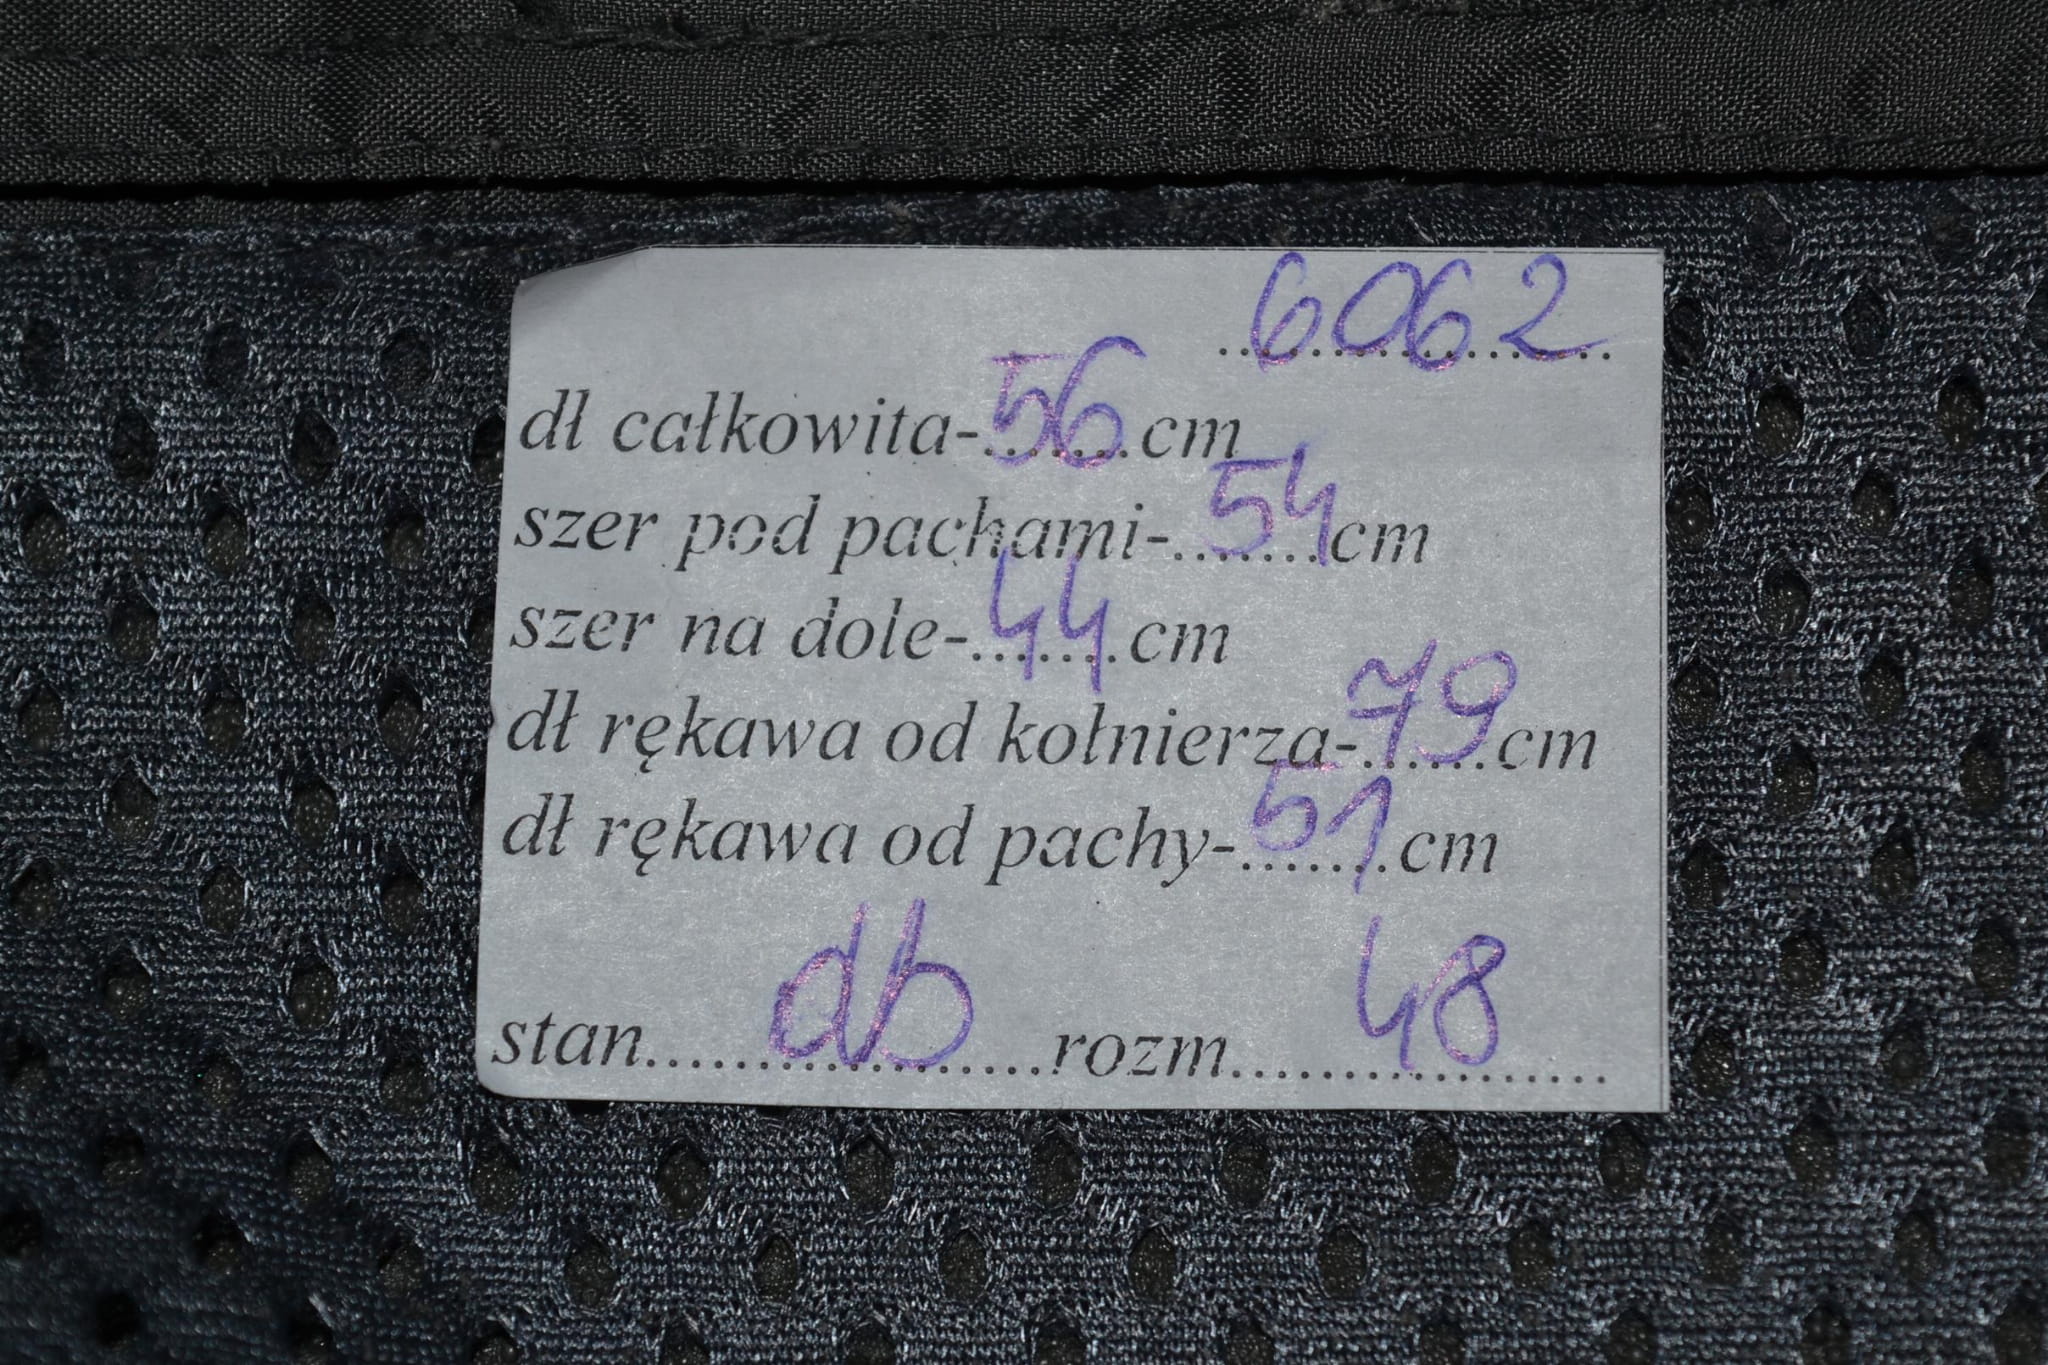 6062
dł całkowita-56cm
szer pod pachami-54cm
szer na dole-44cm
dł rękawa od kołnierza-79cm
dł rękawa od pachy-51cm
stan db rozm 48